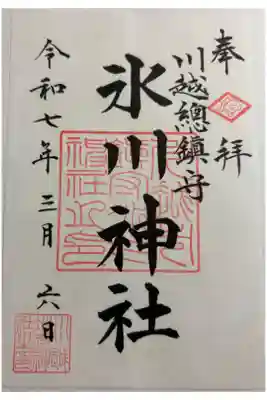 奉拝
川越總鎮守
氷川神社
令和七年三月六日